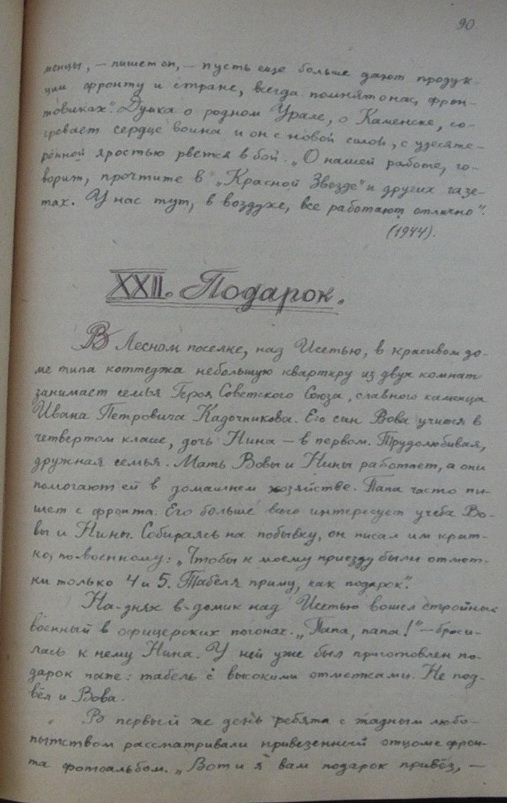 90
менцы, — пишет он, — пусть еще больше дают продук-
ции фронту и стране, всегда помнят о нас, фрон-
товиках." Думка о родном Урале, о Каменске, со-
гревает сердце воина и он с новой силой, с удесяте-
рённой яростью рвется в бой. „О нашей работе, го-
ворит, прочтите в „Красной Звезде" и других газе-
тах. У нас тут, в воздухе, все работают отлично".
(1944).
XXII. Подарок.
В Лесном поселке, над Исетью, в красивом до-
ме типа коттеджа небольшую квартиру из двух комнат
занимает семья Героя Советского Союза, славного каменца
Ивана Петровича Кадочникова. Его сын Вова учится в
четвертом классе, дочь Нина — в первом. Трудолюбивая,
дружная семья. Мать Вовы и Нины работает, а они
помогают ей в домашнем хозяйстве. Папа часто пи-
шет с фронта. Его больше всего интересует учеба Во-
вы и Нины. Собираясь на побывку, он писал им крат-
ко, по-военному: „Чтобы к моему приезду были отмет-
ки только 4 и 5. Табеля приму, как подарок".
На-днях в домик над Исетью вошел стройный
военный в офицерских погонах. „Папа, папа!" — броси-
лась к нему Нина. У ней уже был приготовлен по-
дарок папе: табель с высокими отметками. Не под-
вёл и Вова.
В первый же день ребята с жадным любо-
пытством рассматривали привезенный отцом с фрон-
та фотоальбом. „Вот и я вам подарок привёз, —